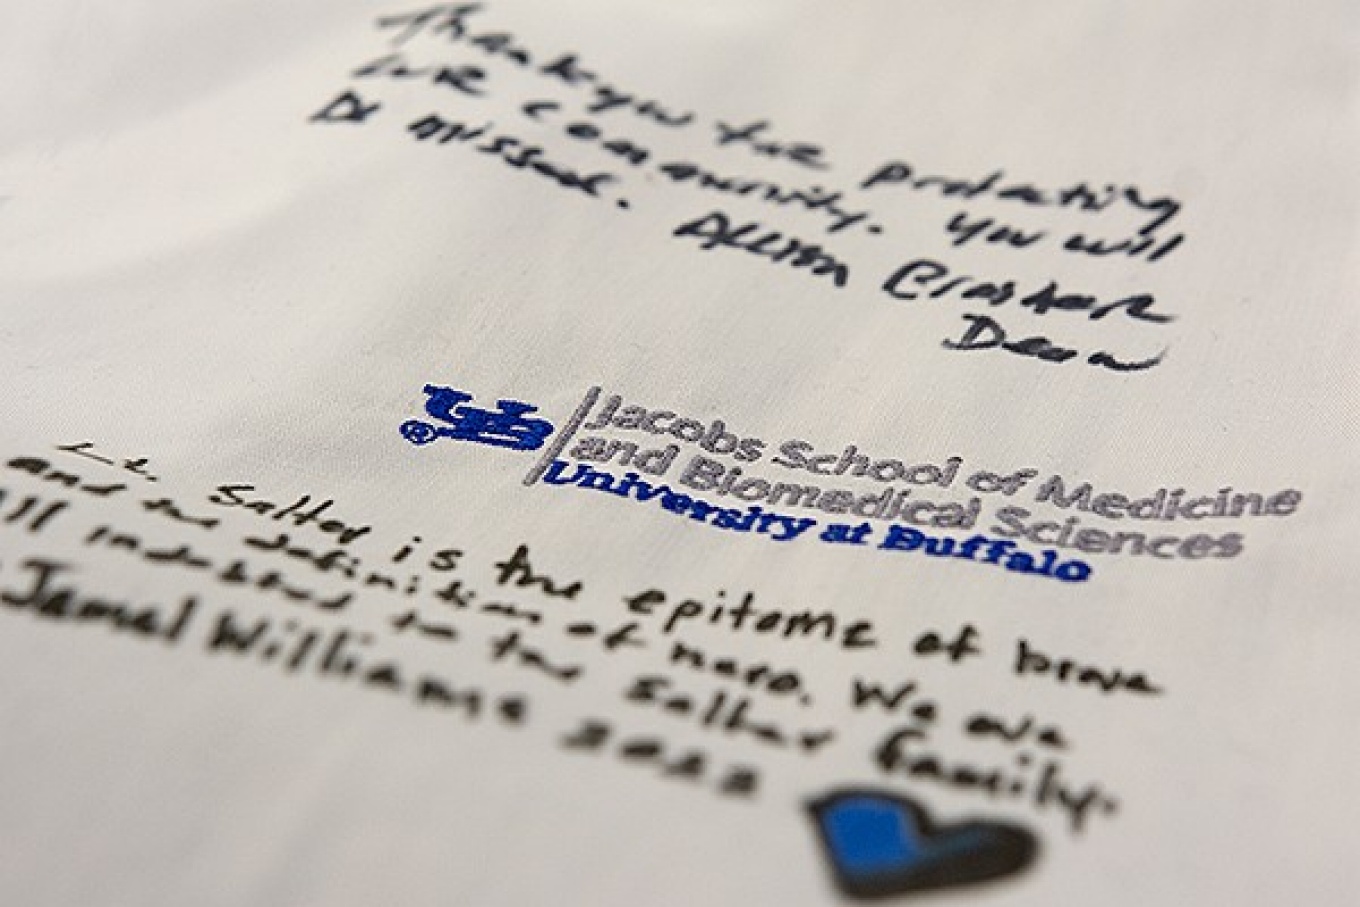 Thank you for protecting
our community. You will
be missed. Allison Brashear
Dean
UB ®
Jacobs School of Medicine
and Biomedical Sciences
University at Buffalo
Lt. Salter is the epitome of brave
and the definition of hero. We are
all indebted to the Salter family.
Jamal Williams 2022